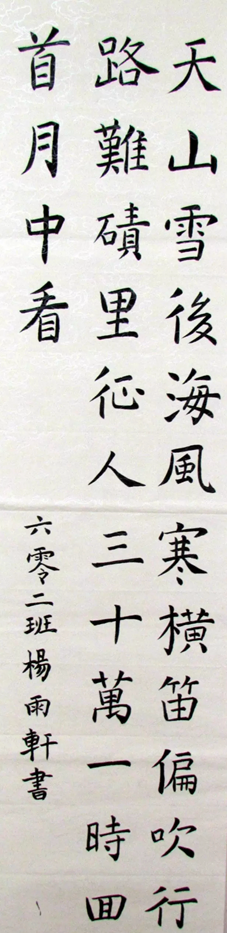 天山雪後海風寒橫笛偏吹行
路難磧里征人三十萬一時囬
首月中看
六零二班楊雨軒書